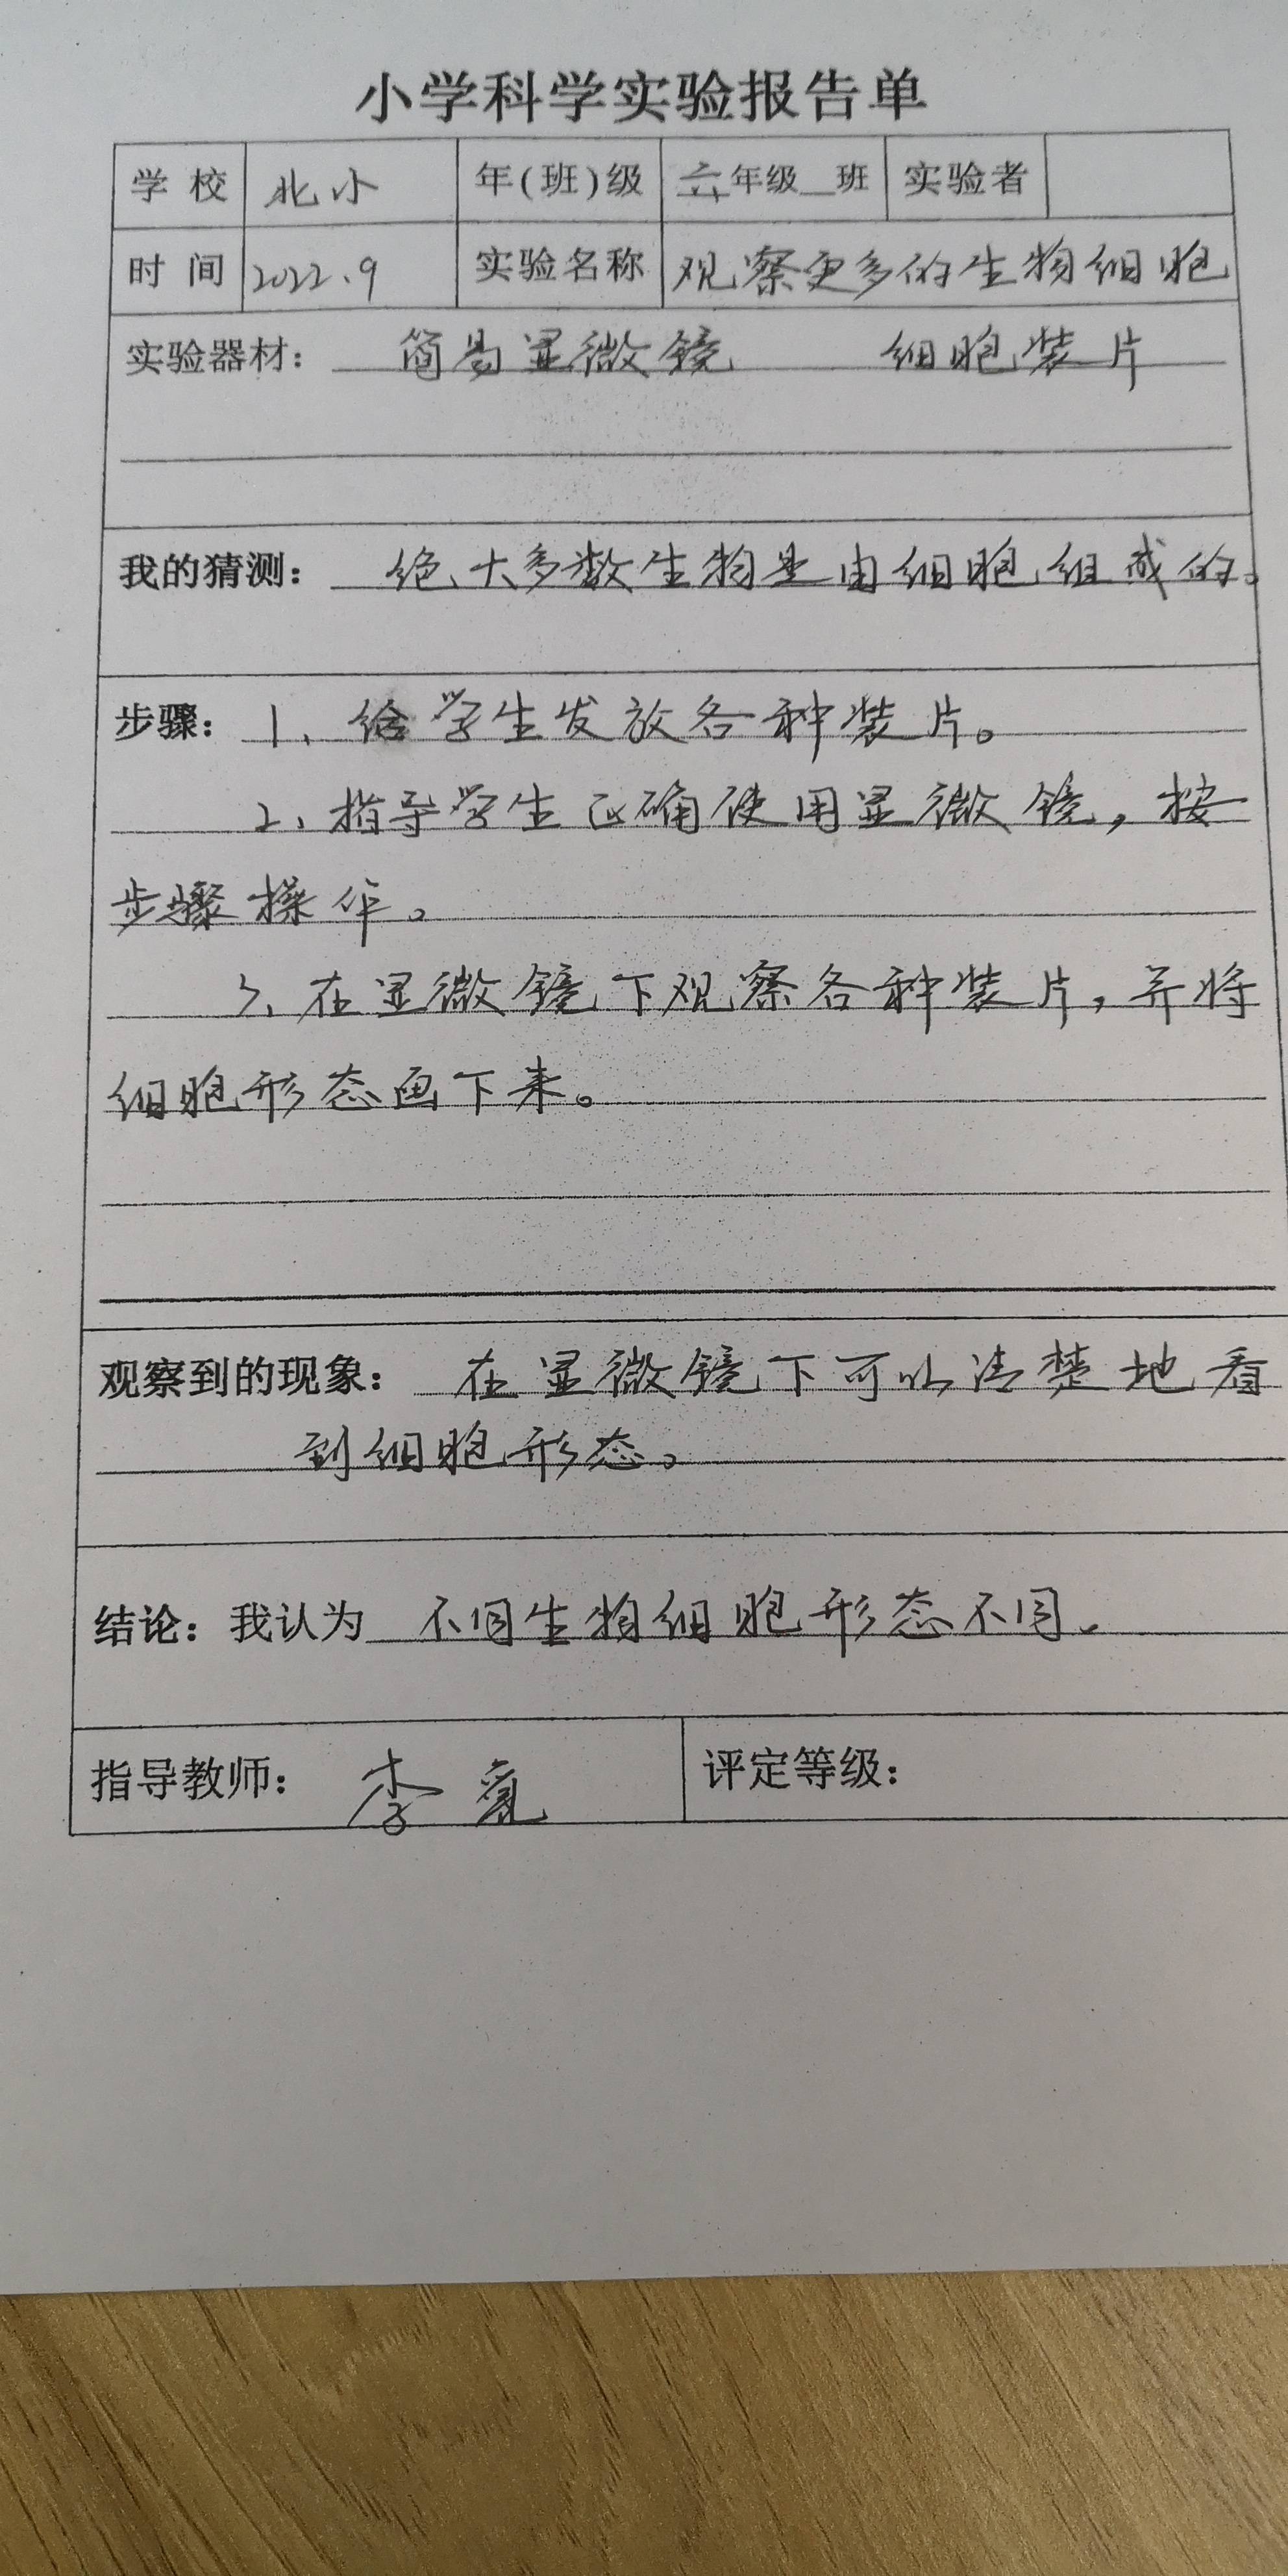 小学科学实验报告单
学校 北小 年(班)级 六年级__班 实验者
时间 2022.9 实验名称 观察更多的生物细胞
实验器材： 简易显微镜 细胞装片
我的猜测： 绝大多数生物是由细胞组成的。
步骤： 1、给学生发放各种装片。
2、指导学生正确使用显微镜，按
步骤操作。
3、在显微镜下观察各种装片，并将
细胞形态画下来。
观察到的现象： 在显微镜下可以清楚地看
到细胞形态。
结论：我认为 不同生物细胞形态不同。
指导教师： 李 评定等级：